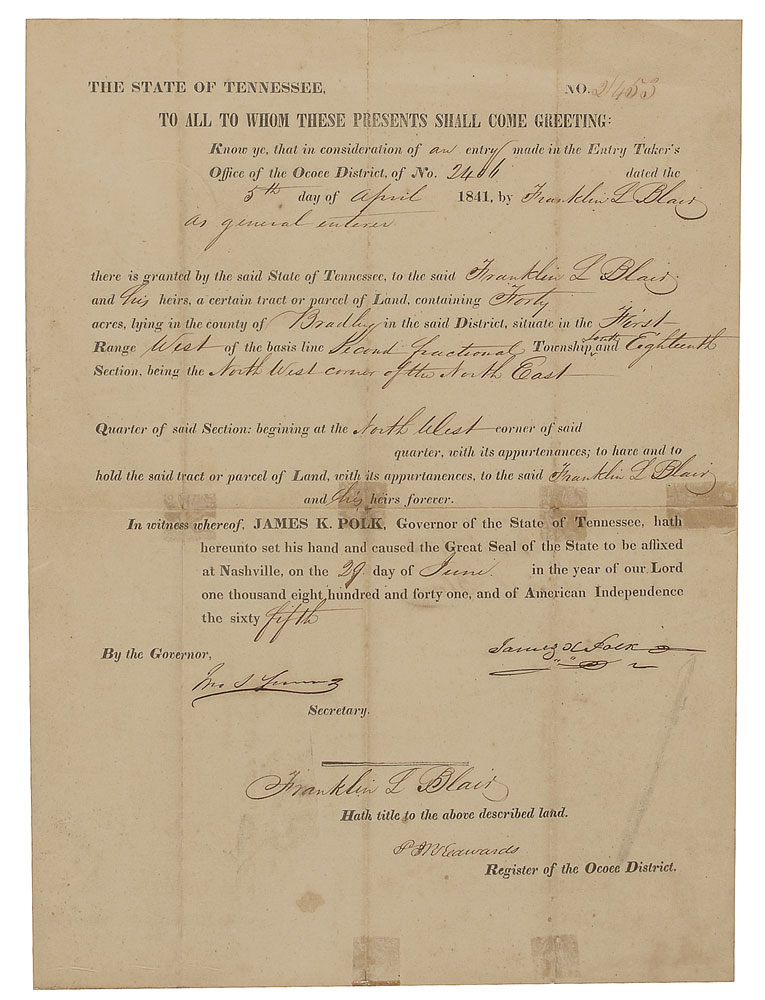 THE STATE OF TENNESSEE, NO. 2453
TO ALL TO WHOM THESE PRESENTS SHALL COME GREETING:
Know ye, that in consideration of an entry made in the Entry Taker's
Office of the Ococee District, of No. dated the
5th day of April 1841, by Franklin L Blair
as general enterer
there is granted by the said State of Tennessee, to the said Franklin L Blair
and his heirs, a certain tract or parcel of Land, containing Forty
acres, lying in the county of Bradley in the said District, situate in the First
Range West of the basis line Second fractional Township South and Eighteenth
Section, being the North West corner of the North East
Quarter of said Section: begining at the North West corner of said
quarter, with its appurtenances; to have and to
hold the said tract or parcel of Land, with its appurtanences, to the said Franklin L Blair
and his heirs forever.
In witness whereof, JAMES K. POLK, Governor of the State of Tennessee, hath
hereunto set his hand and caused the Great Seal of the State to be affixed
at Nashville, on the 29 day of June. in the year of our Lord
one thousand eight hundred and forty one, and of American Independence
the sixty fifth
By the Governor, James K Polk
Jno S Young
Secretary.
Franklin L Blair
Hath title to the above described land.
Edwards
Register of the Ococee District.